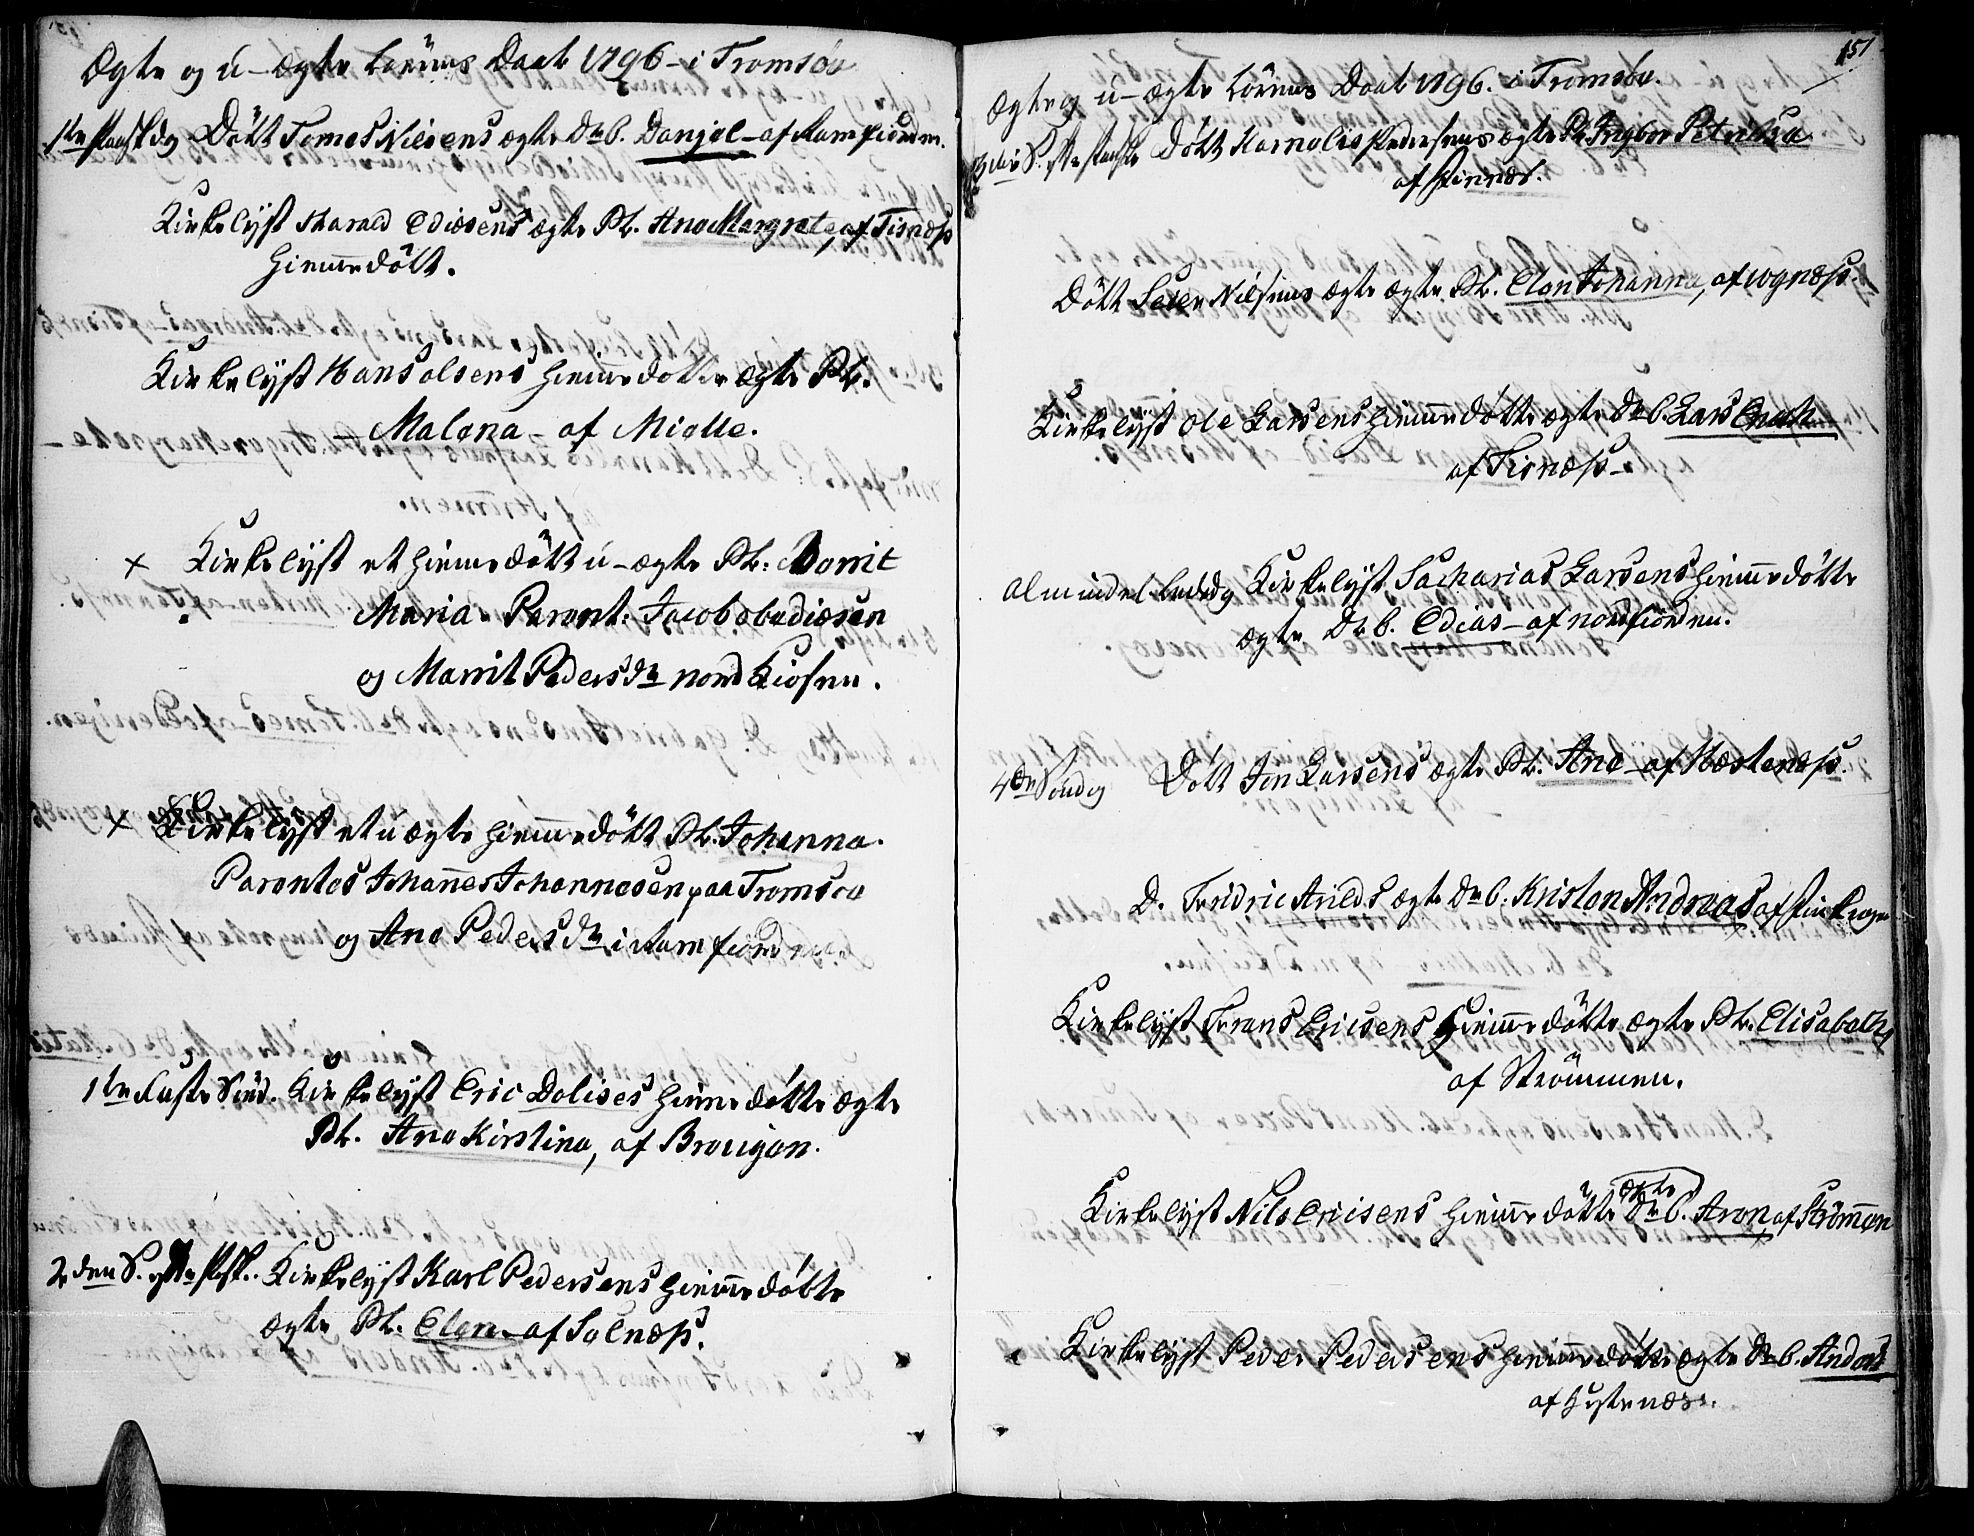 Ægte og u-ægte börnes Daab 1796 - i Tromsöe
1te paaskedg Döbt Tomes Nilsens ægte Drb. Danjel - af Ramfiorden.
Kirkelyst Harald Ediæsens ægte Pb. Ane Margrete, af Tisnæss
hiemmedöbt.
Kirkelyst Hans Olsens hiemmedöbte ægte Pb.
- Malena - af Mielle.
+ Kirkelyst et hiemmedöbt u-ægte Pb: Marrit
Maria. Parent: Jacob Obediæsen
og Marrit Pedersdtr nord Kiosen.
+ Kirkelyst et uægte hiemmedöbt Pb. Johanna.
Parentes Johannes Johannesen paa Tromsöe
og Ane Pedersdtr i Ramfiorden
1te Faste Sönd. Kirkelyst Eric Dolises hiemmedöbte ægte
Pb. Ane Kirstina, af Brouigen.
2den S. efter Pask. Kirkelyst Karl Pedersens hiemmedöbte
ægte Pb. Elen - af Solnæss.
151
Ægte og u-ægte börnes Daab 1796. i Tromsöe.
3die S. efter Paaske Döbt Kornelis Pedersens ægte Pb. Ingbor Petrikka
af Finnes.
Döbt Seier Nilsens ægte ægte Pb. Elen Johanna, af Vognæss.
Kirkelyst Ole Larsens hiemmedöbte ægte Drb. Lars Enoch
af Tisnæss -
Almindel. bededg Kirkelyst Sacharias Larsens hiemmedöbte
ægte Drb. Edias - af nordfiorden.
4de Söndg Döbt Jon Larsens ægte Pb. Ane - af Hæstenæss.
D. Fridric Arilds ægte Drb. Kristen Andreas af
Kirkelyst Frans Ericsens hiemmedöbte ægte Pb. Elisabeth,
af Strömmen.
Kirkelyst Nils Ericsens hiemmedöbte ægte Drb. Aron af Strömmen
Kirkelyst Peder Pedersens hiemmedöbte ægte Drb. Anders
af Hestenæs.